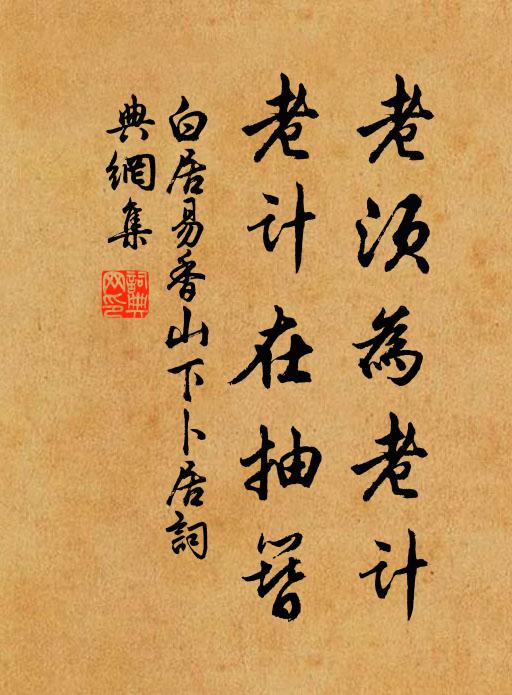 老須為老計
老計在抽簪
白居易香山下卜居詞
典網集
詞典
网印